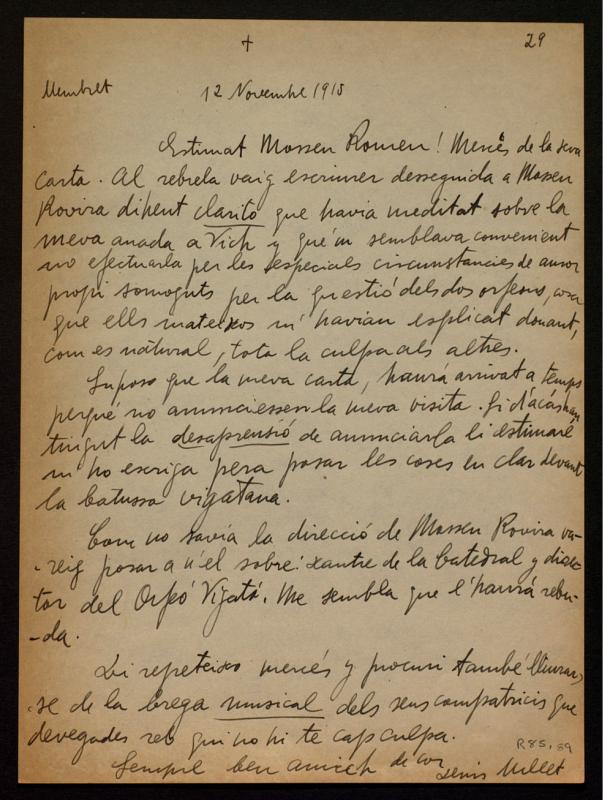 +
29
Membret 12 Novembre 1915
Estimat Mossen Romeu! Mercès de la seva
carta. Al rebrela vaig escriurer desseguida a Mossen
Rovira dihent clarito que havia meditat sobre la
meva anada a Vich y qué'm semblava convenient
no efectuarla per les especials circunstancies de amor
propi somoguts per la questió dels dos orfeons, cosa
que ells mateixos m' havian esplicat donant,
com es natural, tota la culpa als altres.
Suposo que la meva carta, haurá arrivat a temps
perqué no anunciessen la meva visita. Si d'acás han
tingut la desaprensió de anunciarla li estimaré
m' ho escriga pera posar les coses en clar devant
la batussa vigatana.
Com no savía la direcció de Mossen Rovira va-
-reig posar a n'el sobre: xantre de la Catedral y direc-
tor del Orfeó Vigatá. Me sembla que l'haurá rebu-
-da.
Li repeteixo mercés y procuri també lliurar-
-se de la brega musical dels seus compatricis que
devegades reb qui no hi te cap culpa.
Sempre ben amich de cor
Lluis Millet
R85, 59